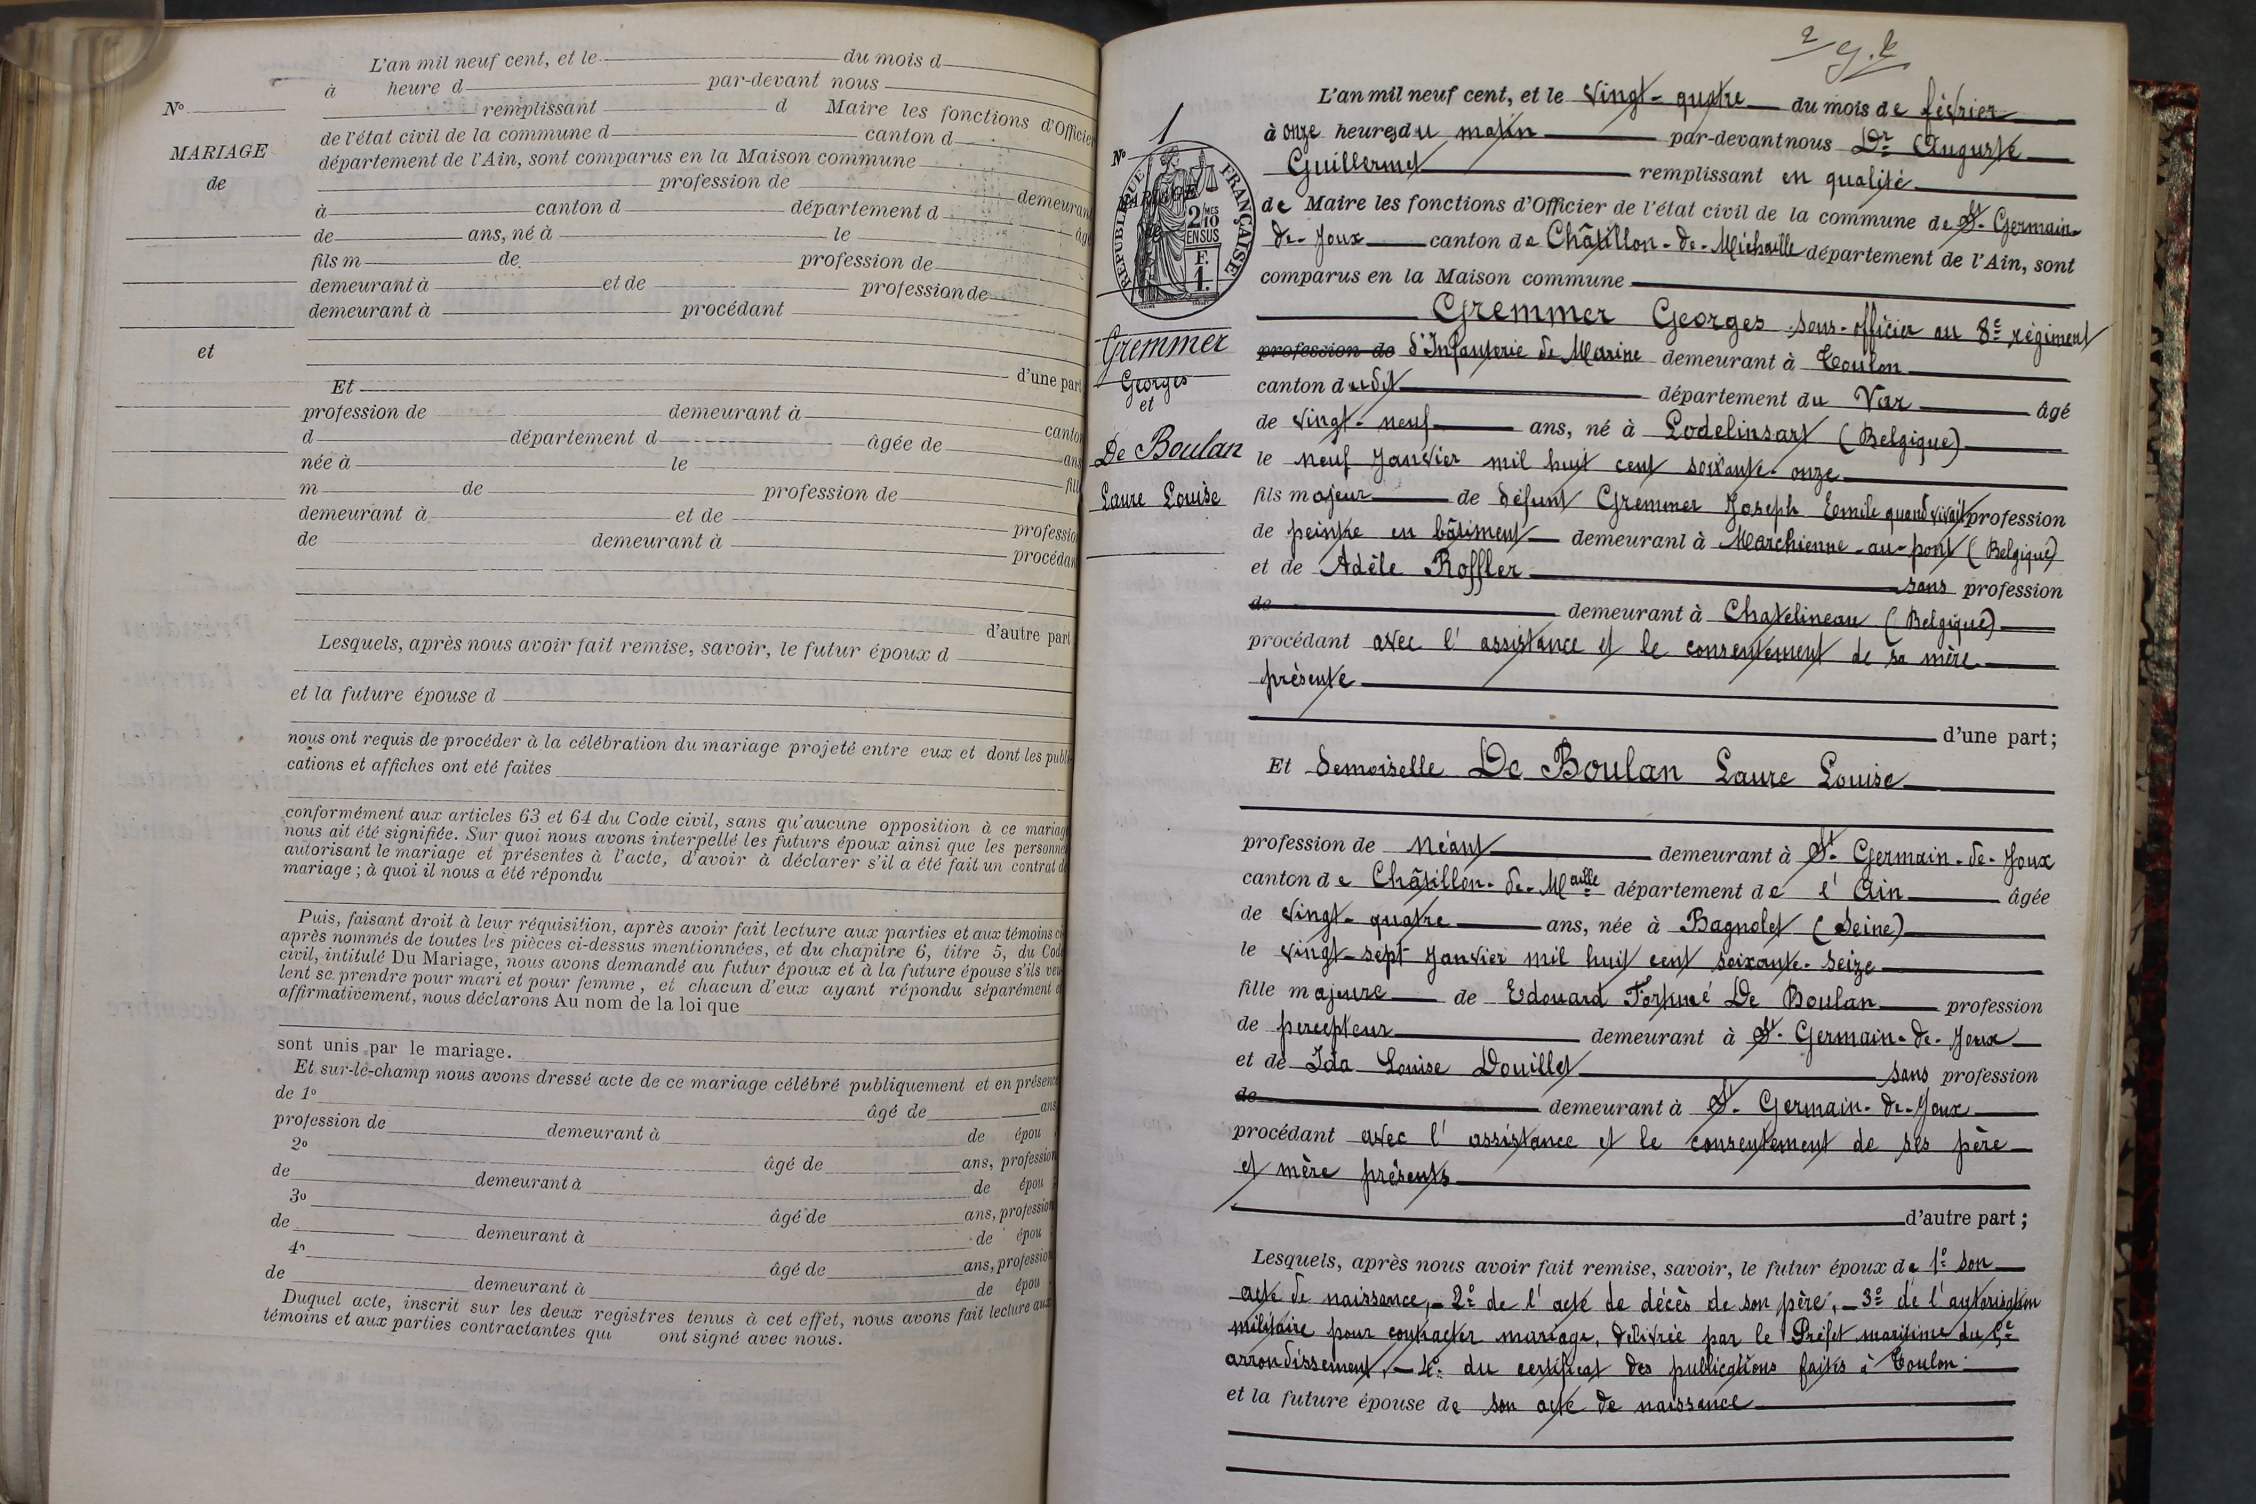 L'an mil neuf cent, et le du mois d
à heure d par-devant nous
remplissant d Maire les fonctions d'Officier
de l'état civil de la commune d canton d
département de l'Ain, sont comparus en la Maison commune
profession de demeurant
à canton d département d âgé
de ans, né à le
fils m de profession de
demeurant à et de profession de
demeurant à procédant
d'une part
Et
profession de demeurant à canton
d département d âgée de ans
née à le fille
m de profession de
demeurant à et de profession
de demeurant à procédant
d'autre part
Lesquels, après nous avoir fait remise, savoir, le futur époux d
et la future épouse d
nous ont requis de procéder à la célébration du mariage projeté entre eux et dont les publi-
cations et affiches ont eté faites
conformément aux articles 63 et 64 du Code civil, sans qu'aucune opposition à ce mariage
nous ait été signifiée. Sur quoi nous avons interpellé les futurs époux ainsi que les personnes
autorisant le mariage et présentes à l'acte, d'avoir à déclarer s'il a été fait un contrat de
mariage ; à quoi il nous a été répondu
Puis, faisant droit à leur réquisition, après avoir fait lecture aux parties et aux témoins ci-
après nommés de toutes les pièces ci-dessus mentionnées, et du chapitre 6, titre 5, du Code
civil, intitulé Du Mariage, nous avons demandé au futur époux et à la future épouse s'ils veu-
lent se prendre pour mari et pour femme, et chacun d'eux ayant répondu séparément et
affirmativement, nous déclarons Au nom de la loi que
sont unis par le mariage.
Et sur-le-champ nous avons dressé acte de ce mariage célébré publiquement et en présence
de 1º âgé de ans
profession de demeurant à de épou
2º âgé de ans, profession
de demeurant à de épou
3º âgé de ans, profession
de demeurant à de épou
4º âgé de ans, profession
de demeurant à de épou
Duquel acte, inscrit sur les deux registres tenus à cet effet, nous avons fait lecture aux
témoins et aux parties contractantes qui ont signé avec nous.
Nº
MARIAGE
de
et
Nº 1
MARIAGE
RÉPUBLIQUE FRANÇAISE
2/10 MES
EN SUS
F.
1.
Gremmer
Georges
et
De Boulan
Laure Louise
L'an mil neuf cent, et le vingt-quatre du mois de février
à onze heures du matin par-devant nous Dr Auguste
Guillermet remplissant en qualité
de Maire les fonctions d'Officier de l'état civil de la commune de St-Germain-
de-Joux canton de Châtillon-de-Michaille département de l'Ain, sont
comparus en la Maison commune
Gremmer Georges sous-officier au 8e régiment
profession de d'Infanterie de Marine demeurant à Toulon
canton dudit département du Var âgé
de vingt-neuf ans, né à Lodelinsart (Belgique)
le neuf Janvier mil huit cent soixante-onze
fils majeur de défunt Gremmer Joseph Emile quand vivait profession
de peintre en bâtiment demeurant à Marchienne-au-pont (Belgique)
et de Adèle Roffler sans profession
de demeurant à Chatelineau (Belgique)
procédant avec l'assistance et le consentement de sa mère
présente
d'une part ;
Et demoiselle De Boulan Laure Louise
profession de néant demeurant à St-Germain-de-Joux
canton de Châtillon-de-Maille département de l'Ain âgée
de vingt-quatre ans, née à Bagnolet (Seine)
le vingt-sept Janvier mil huit cent soixante-seize
fille majeure de Edouard Fortuné De Boulan profession
de percepteur demeurant à St-Germain-de-Joux
et de Ida Louise Douillet sans profession
de demeurant à St-Germain-de-Joux
procédant avec l'assistance et le consentement de ses père
et mère présents
d'autre part ;
Lesquels, après nous avoir fait remise, savoir, le futur époux de 1º son
acte de naissance, - 2º de l'acte de décès de son père, - 3º de l'autorisation
militaire pour contracter mariage, délivrée par le Préfet maritime du 5e
arrondissement, - 4º du certificat des publications faites à Toulon
et la future épouse de son acte de naissance